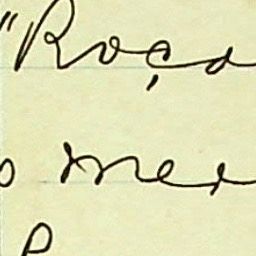 "Roça
o meu